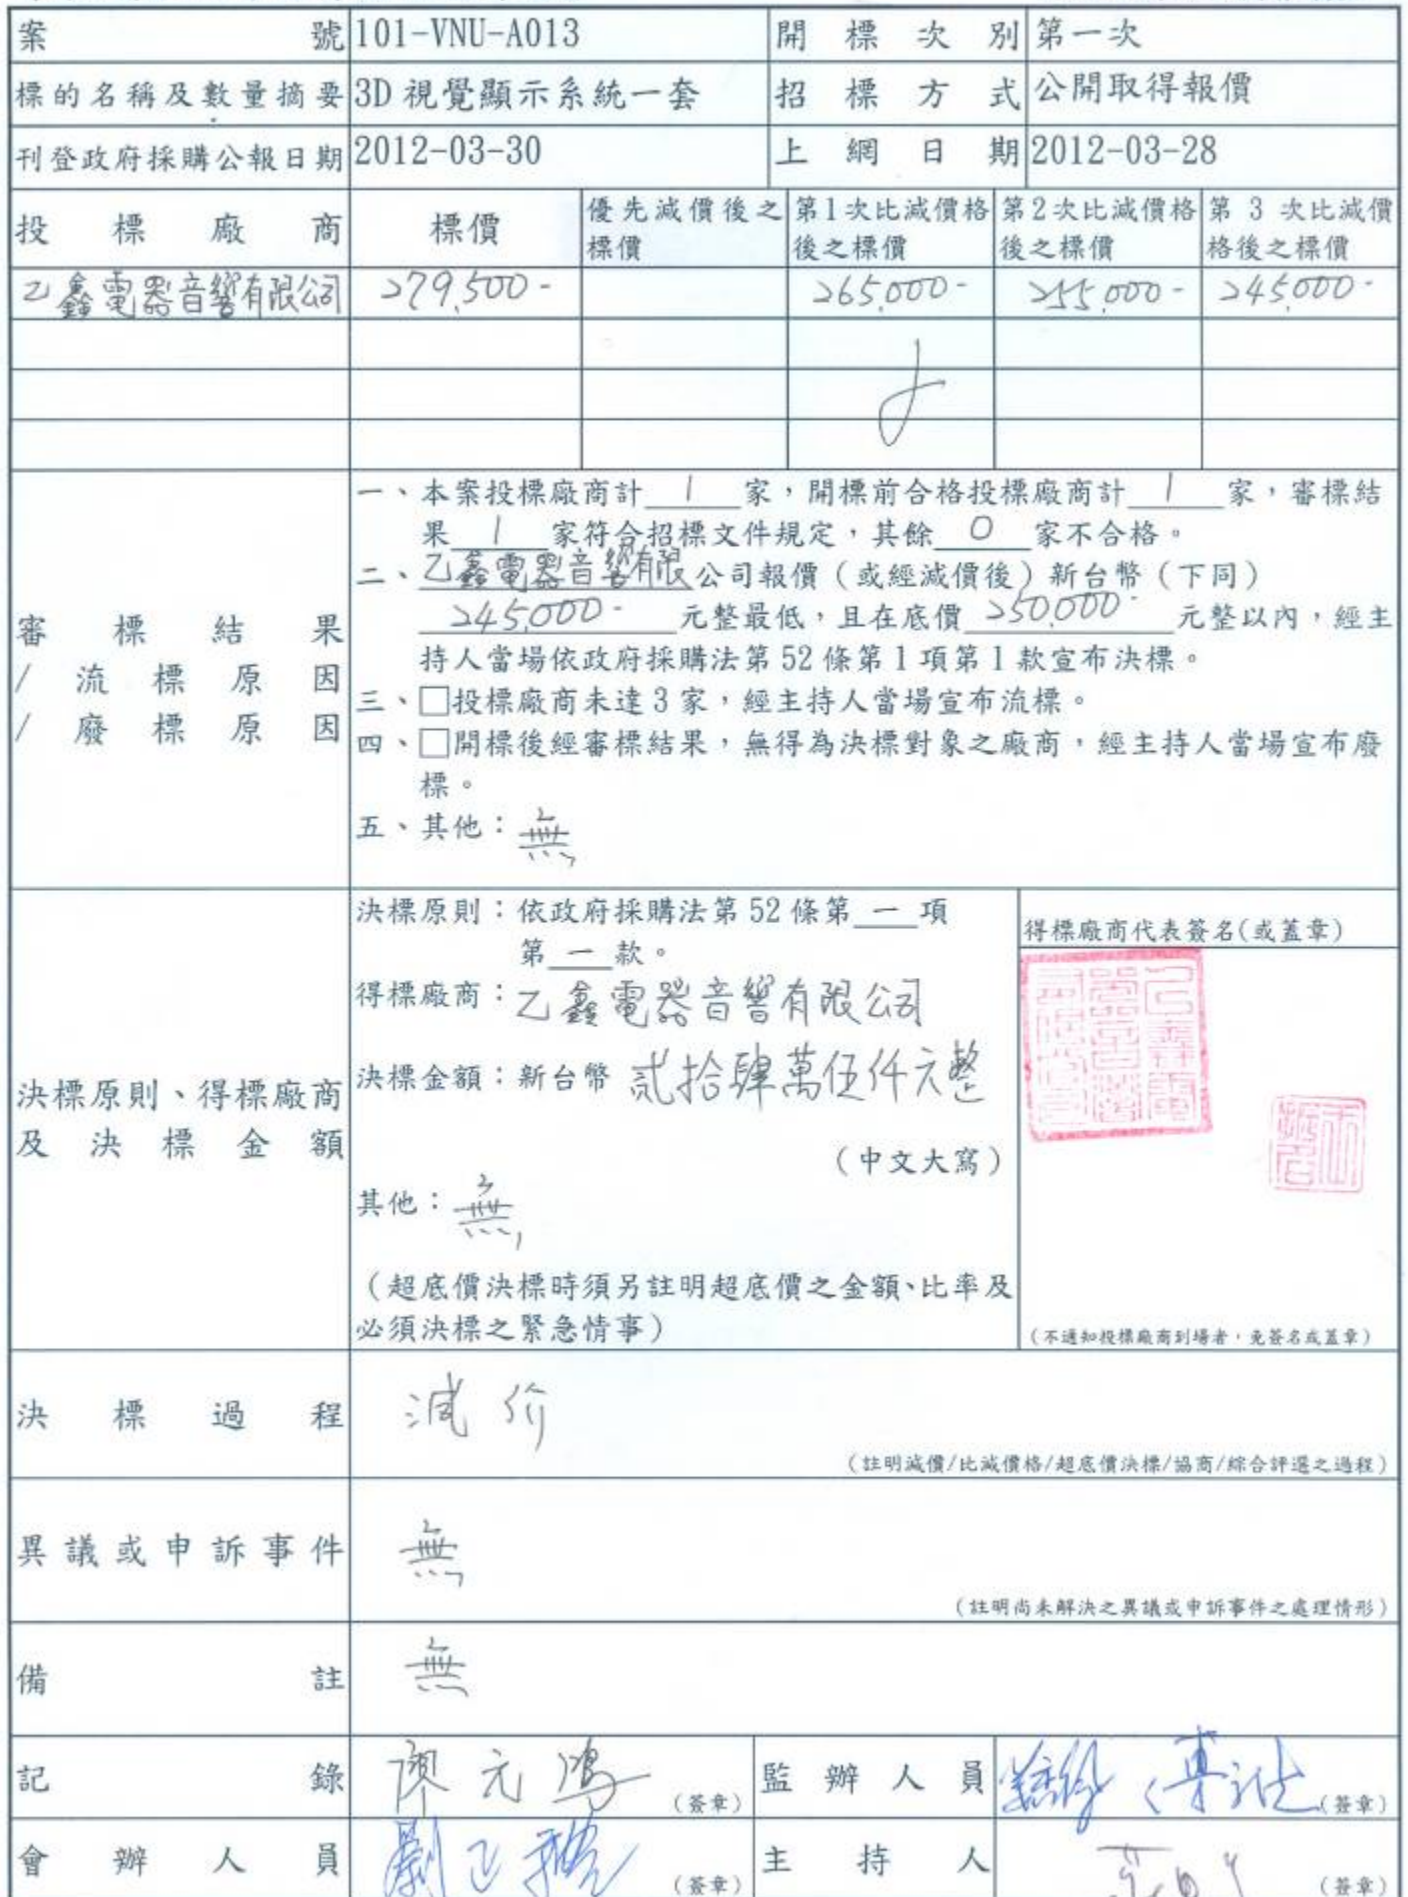 案號 101-VNU-A013 開標次別 第一次
標的名稱及數量摘要 3D視覺顯示系統一套 招標方式 公開取得報價
刊登政府採購公報日期 2012-03-30 上網日期 2012-03-28
投標廠商 標價 優先減價後之標價 第1次比減價格後之標價 第2次比減價格後之標價 第3次比減價格後之標價
乙鑫電器音響有限公司 279,500- 265,000- 255,000- 245,000-
審標結果
/流標原因
/廢標原因
一、本案投標廠商計 1 家，開標前合格投標廠商計 1 家，審標結
果 1 家符合招標文件規定，其餘 0 家不合格。
二、乙鑫電器音響有限公司報價（或經減價後）新台幣（下同）
245,000- 元整最低，且在底價 250,000- 元整以內，經主
持人當場依政府採購法第52條第1項第1款宣布決標。
三、□投標廠商未達3家，經主持人當場宣布流標。
四、□開標後經審標結果，無得為決標對象之廠商，經主持人當場宣布廢
標。
五、其他：無
決標原則、得標廠商
及決標金額
決標原則：依政府採購法第52條第一項
第一款。
得標廠商：乙鑫電器音響有限公司
決標金額：新台幣 貳拾肆萬伍仟元整
（中文大寫）
其他：無
（超底價決標時須另註明超底價之金額、比率及
必須決標之緊急情事）
得標廠商代表簽名(或蓋章)
（不通知投標廠商到場者，免簽名或蓋章）
決標過程 減价
（註明減價/比減價格/超底價決標/協商/綜合評選之過程）
異議或申訴事件 無
（註明尚未解決之異議或申訴事件之處理情形）
備註 無
記錄 廖元鴻 （簽章） 監辦人員 （簽章）
會辦人員 （簽章） 主持人 （簽章）